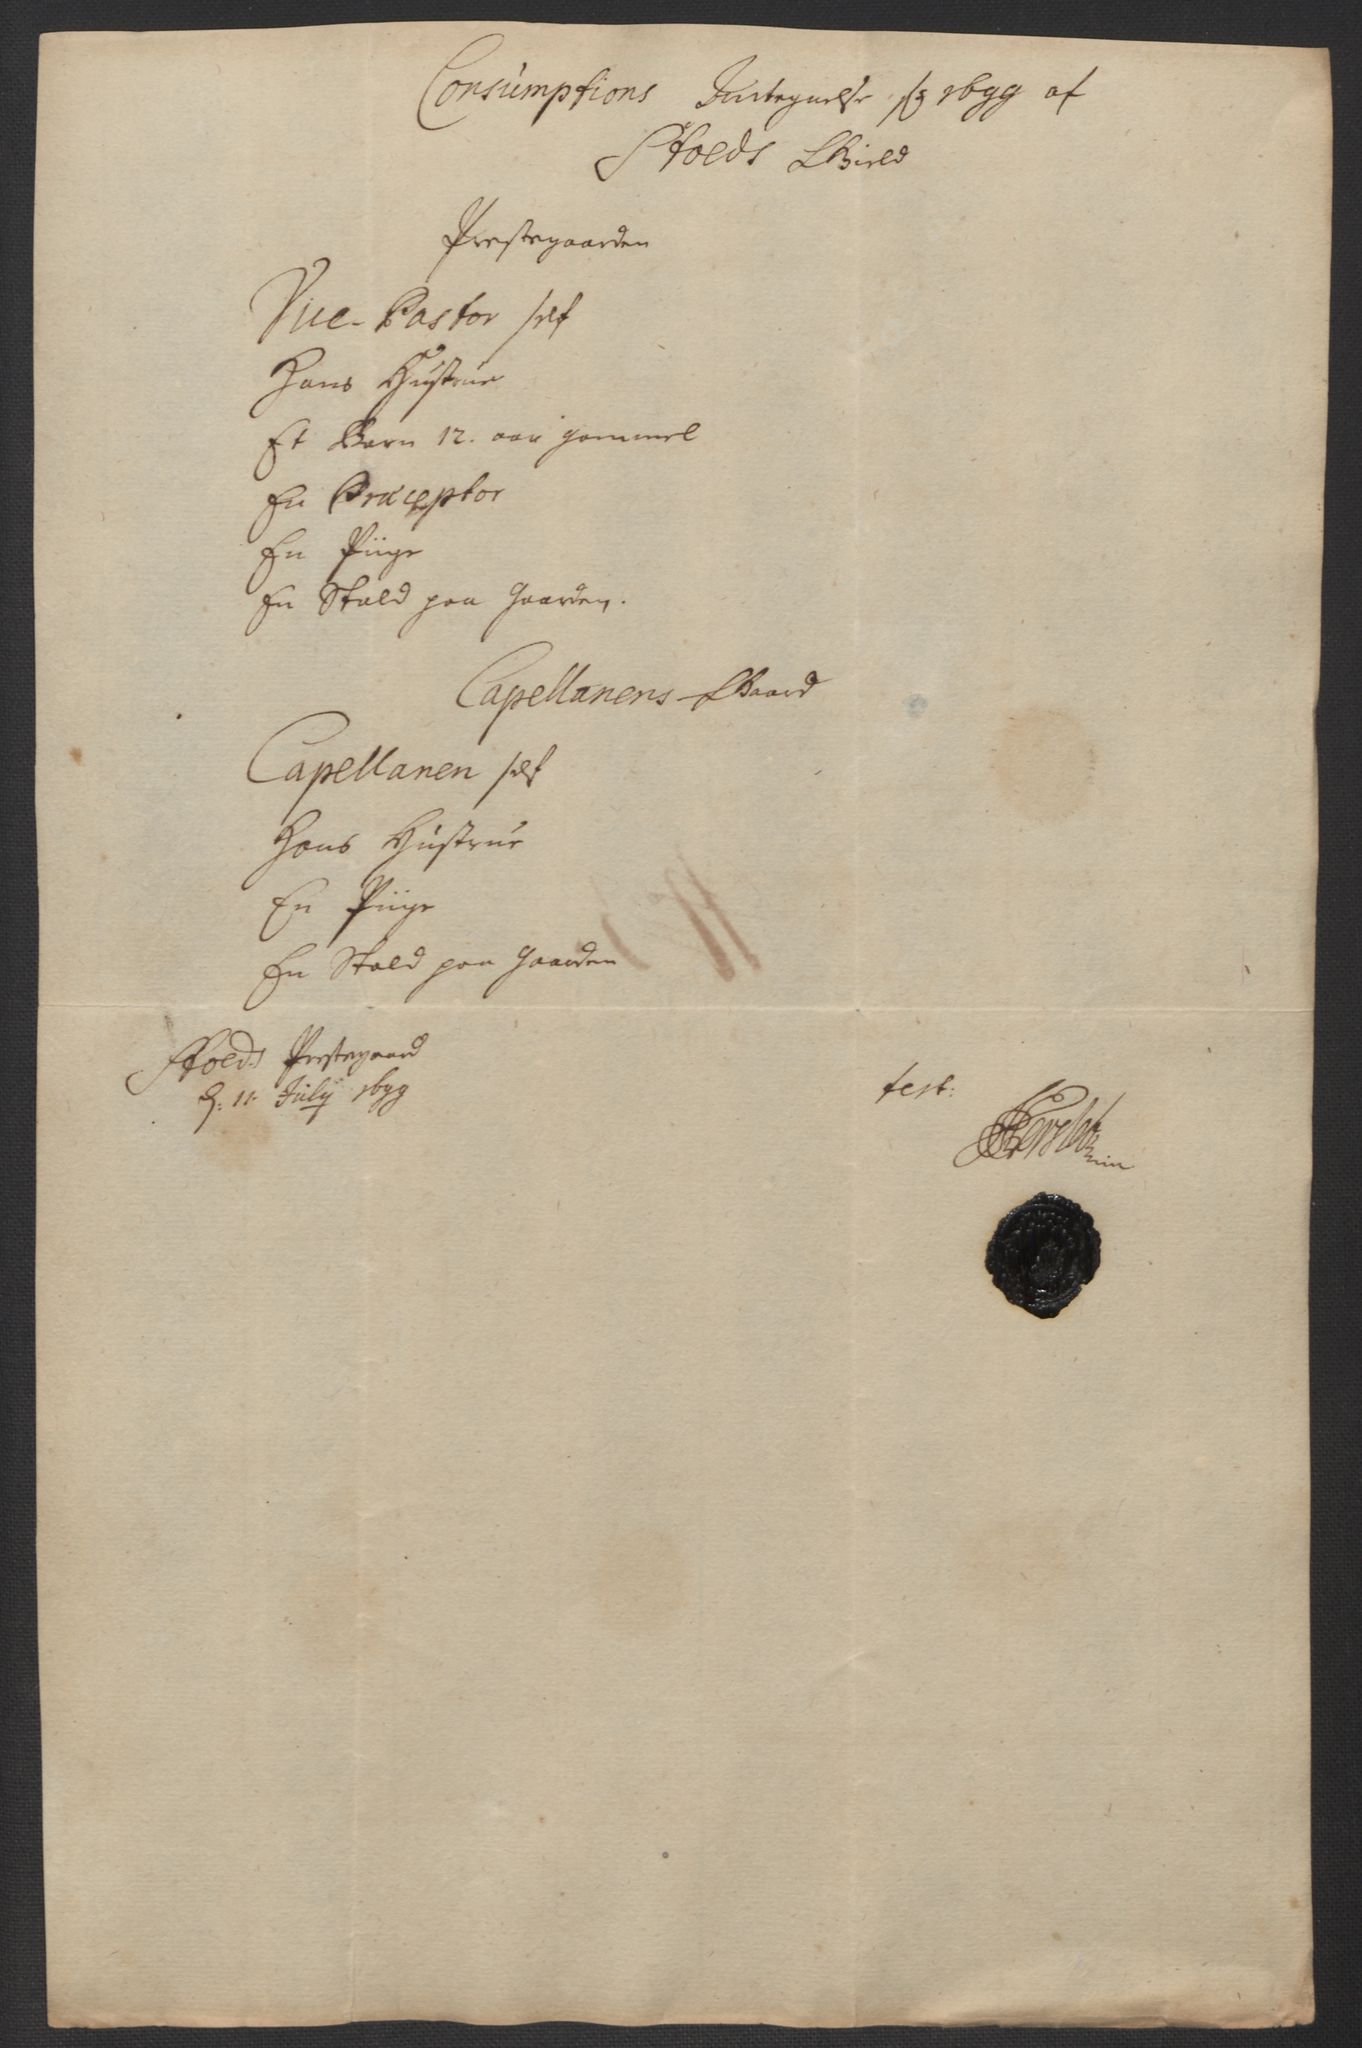 Consumptions Indtegnelse pro 1699 af
Stods Gield
Prestegaarden
Vice-Pastor self
Hans Hustrue
Et Barn 12. aar gammel
En Præceptor
En Piige
En Stald paa Gaarden.
Capellanens-Gaard
Capellanen self
Hans Hustrue
En Piige
En Stald paa Gaarden
Stods Prestegaard
d: 11. July 1699
test: